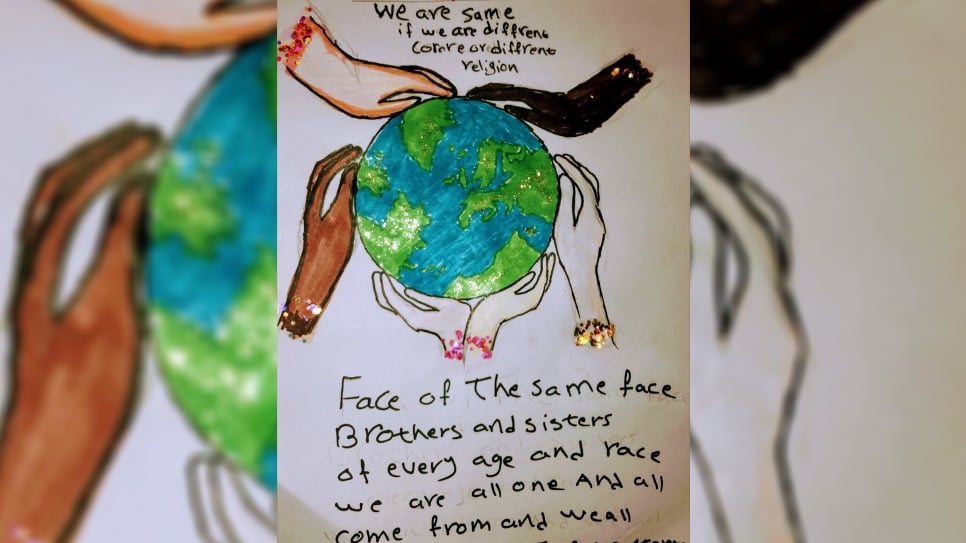 We are same
if we are diffrent
Corore or diffrent
religion
Face of The same face
Brothers and sisters
of every age and race
we are all one And all
come from and we all